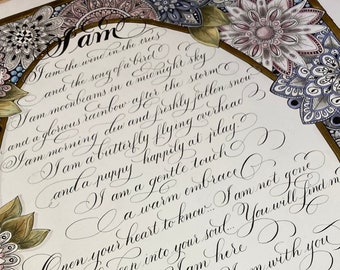 I am
I am the wind in the trees
and the song of a bird
I am moonbeams in a midnight sky
and a glorious rainbow after the storm
I am morning dew and freshly fallen snow
I am a butterfly flying overhead
and a puppy happily at play
I am a gentle touch
a warm embrace
Open your heart to know I am not gone
deep into your soul You will find me
I am here
am with you